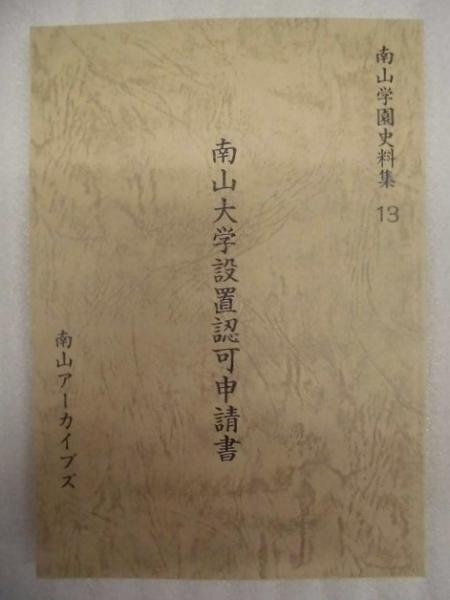 南山学園史料集 13
南山大学設置認可申請書
南山アーカイブズ